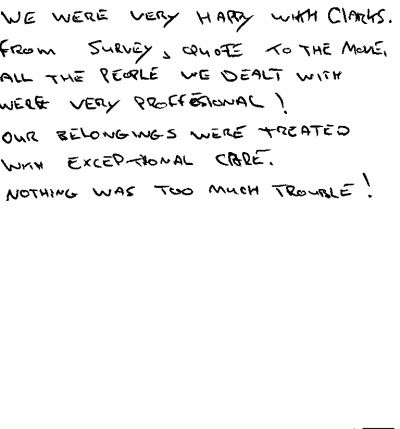 WE WERE VERY HAPPY WITH CLARKS.
FROM SURVEY, QUOTE TO THE MOVE,
ALL THE PEOPLE WE DEALT WITH
WERE VERY PROFFESIONAL!
OUR BELONGINGS WERE TREATED
WITH EXCEPTIONAL CARE.
NOTHING WAS TOO MUCH TROUBLE!